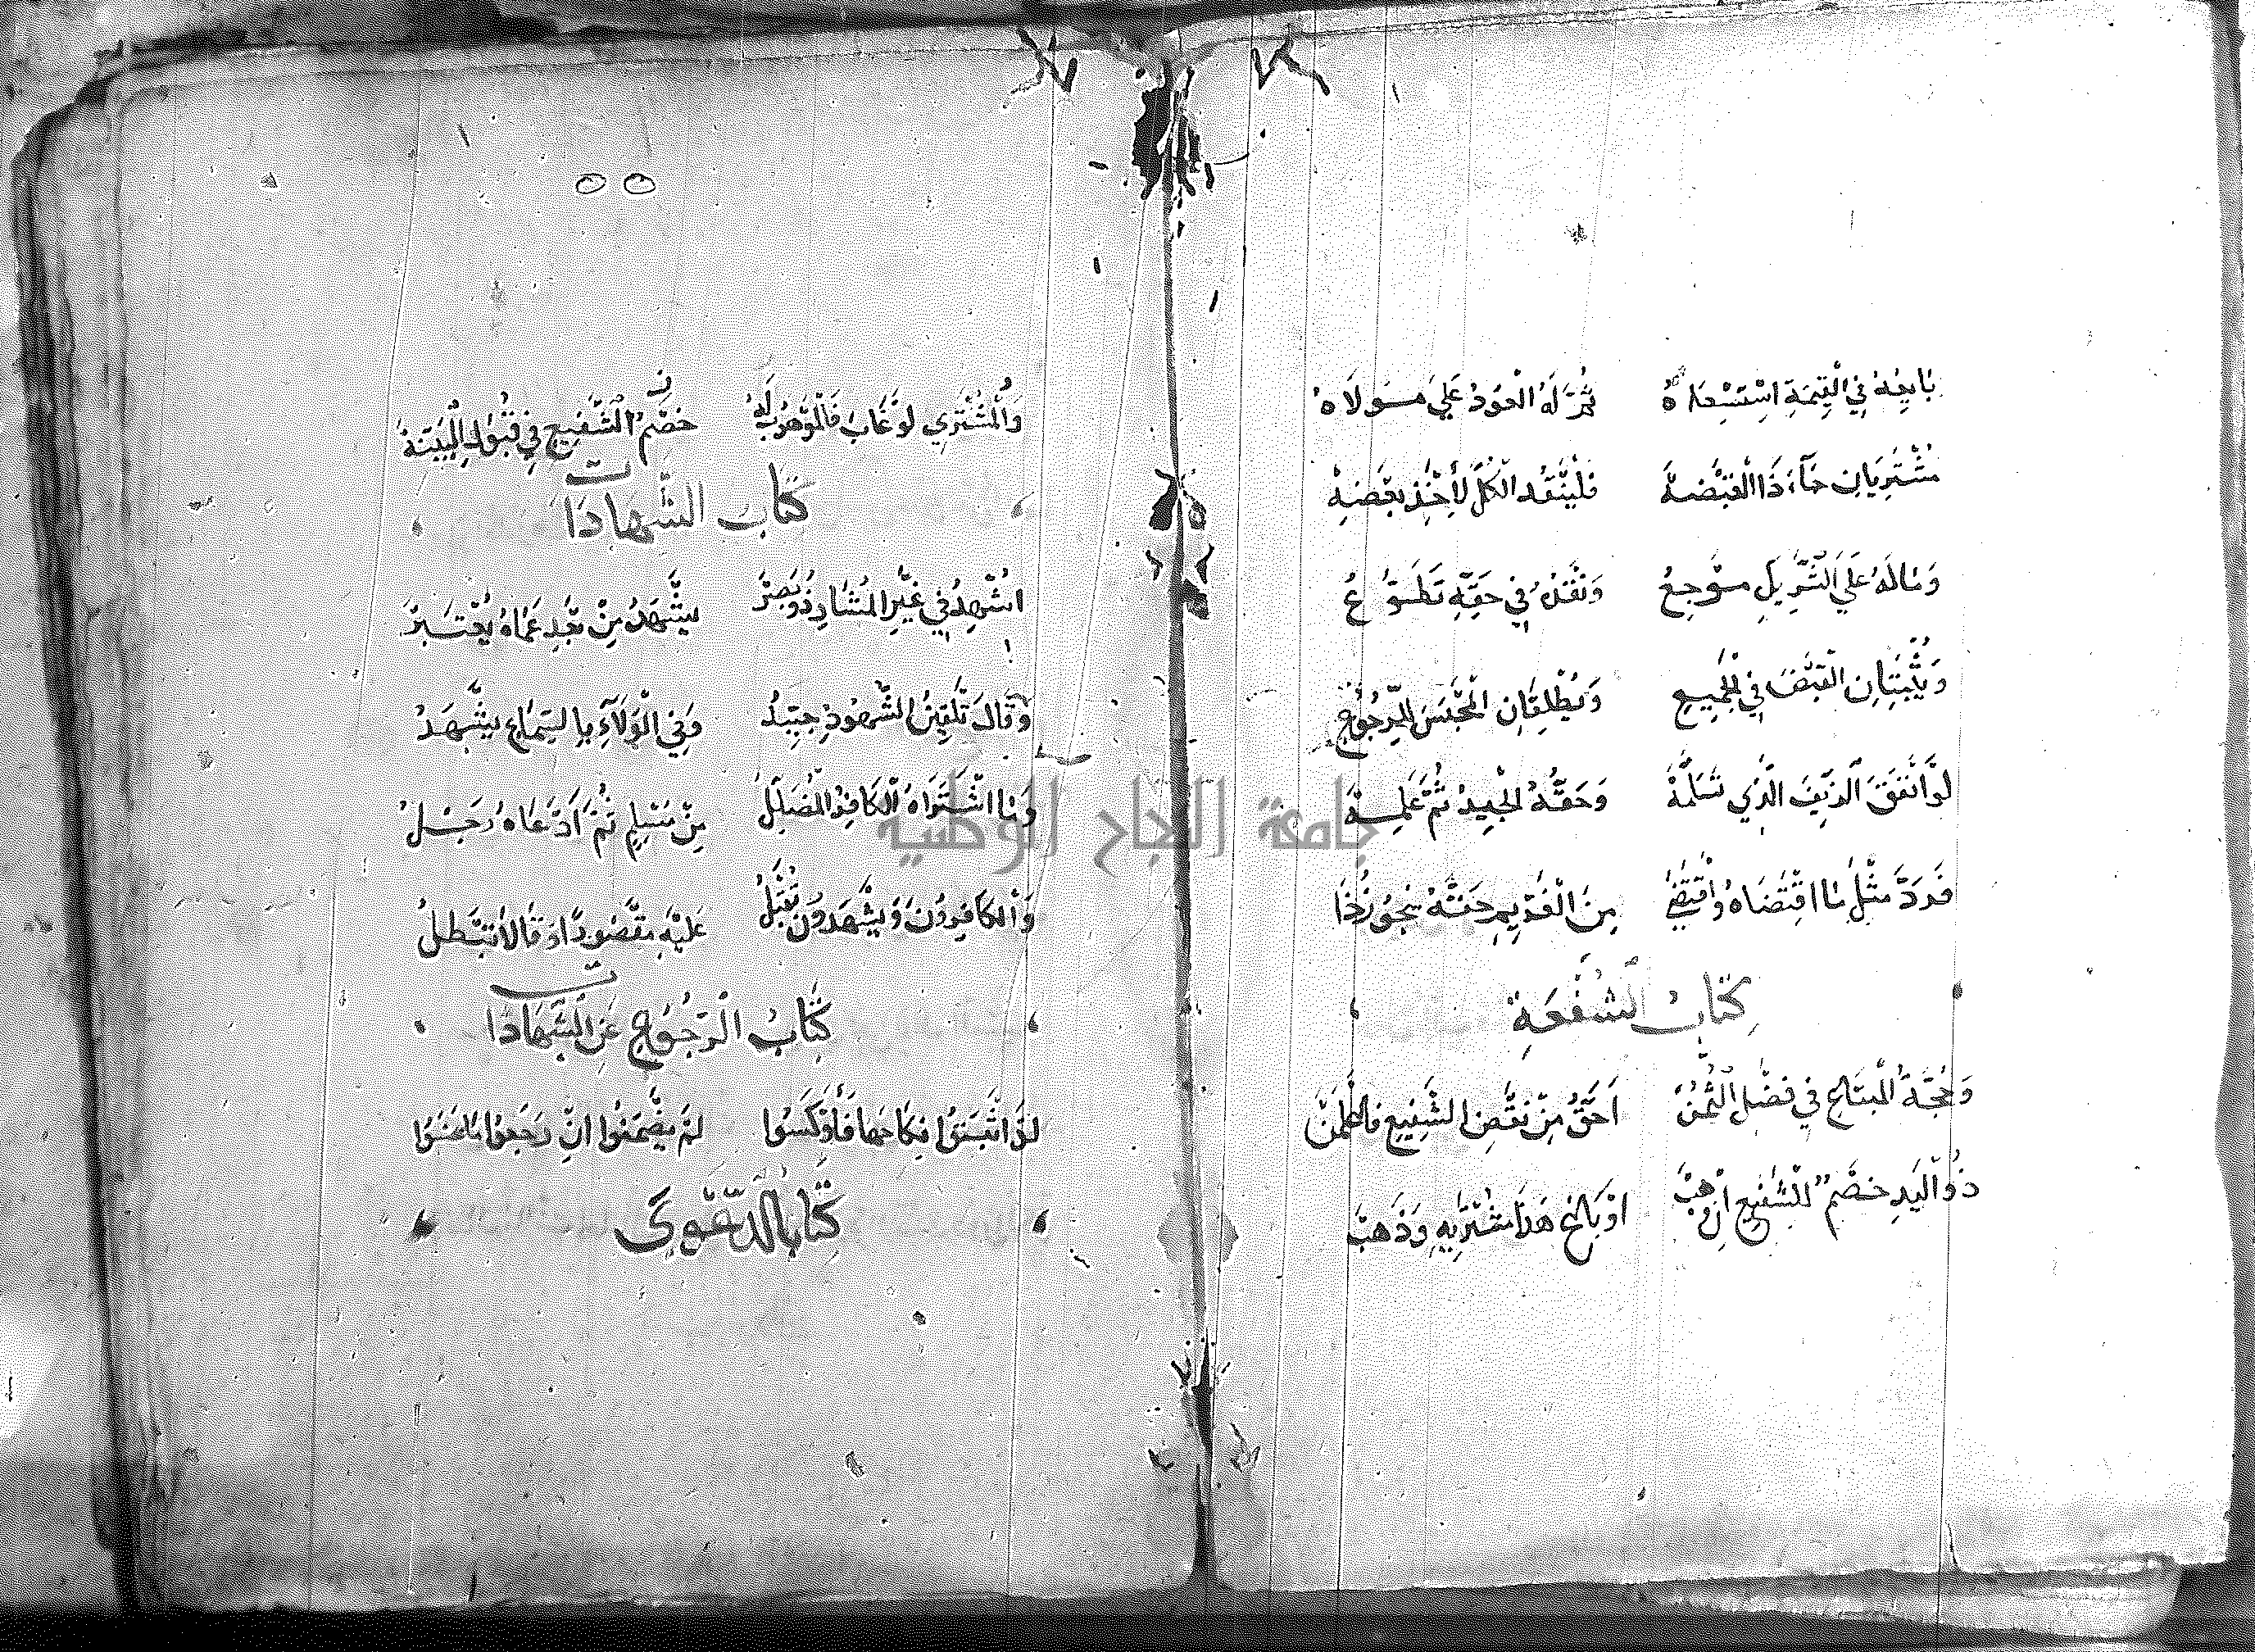 بايعه في القيمة استسعاه ثم له العود على مولاه
مشتريان جاء ذا القبضه فلينقد الكل لأخذ بعضه
وماله على الشريك مرجع ونقده في حقه تطوع
ويثبتان في الجميع ويطلقان الحبس للرجوع
لو أنفق الزيف الذي تسلمه وحقه الجيد ثم علمه
فرد مثل ما اقتضاه واقتضى من الغريم حقه يجوز ذا
كتاب الشفعة
وحجة المبتاع في فضل الثمن أحق من نقض الشفيع
ذو اليد خصم للشفيع ان وهب او باع هذا مشتريه وذهب
والمشتري لو غاب فالموهوب له خصم الشفيع في قبول البينة
كتاب الشهادات
اشهد في غير المشار ذو بصر يشهد من بعد عماه يعتبر
وقال تلقين الشهود جيد وفي الولاء بالسماع يشهد
وما اشتراه الكافر المضلل من مسلم ثم ادعاه رجل
والكافرون ويشهدون تقبل عليه مقصورا وقالا تبطل
كتاب الرجوع عن الشهادات
لو اثبتوا نكاحها فأوكسوا لم يضمنوا ان رجعوا ما
كتاب الدعوى
جامعة النجاح الوطنية